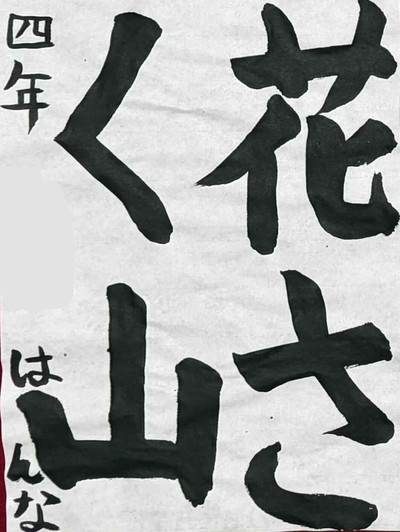 花さ
く山
四年 はんな